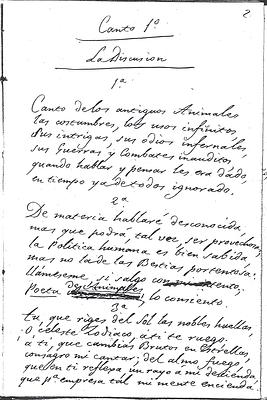 2
Canto 1º
La Discusion
1ª
Canto delos antiguos Animales
las costumbres, los usos infinitos,
sus intrigas, sus odios infernales,
sus Guerras, y Combates inauditos
quando hablar y pensar les era dado,
en tiempo ya de todos ignorado.
2ª
De materia hablaré desconocida,
mas que podrá tal vez ser provechosa;
la Politica humana es bien sabida
mas no la de las Bestias portentosa:
llámeseme, si salgo con
Poeta de Animales, lo consiento.
3ª
Tu, que riges del Sol las nobles huellas
O celeste Zodiaco, a ti te ruego.
á ti, que cambias Brutos en Estrellas,
consagro mi cantar; del almo fuego
que en ti refleja, un rayo a mi descienda
que pª empresa tal mi mente encienda.